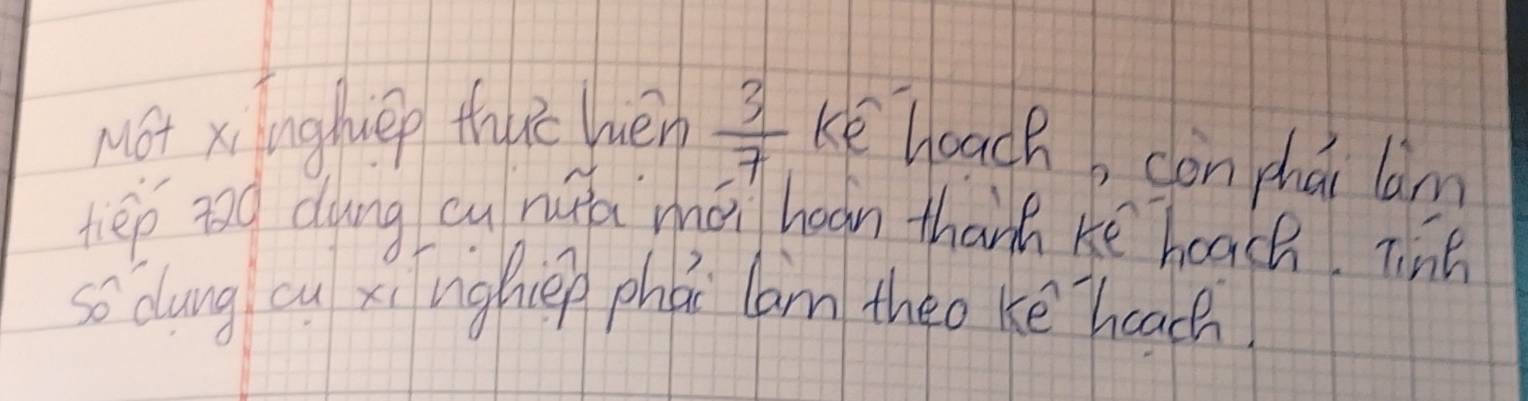 Một xí nghiệp thực hiện 3/7 kế hoạch, còn phải làm
tiếp 720 dụng cụ nữa mới hoàn thành kế hoạch. Tính
số dụng cụ xí nghiệp phải làm theo kế hoạch.